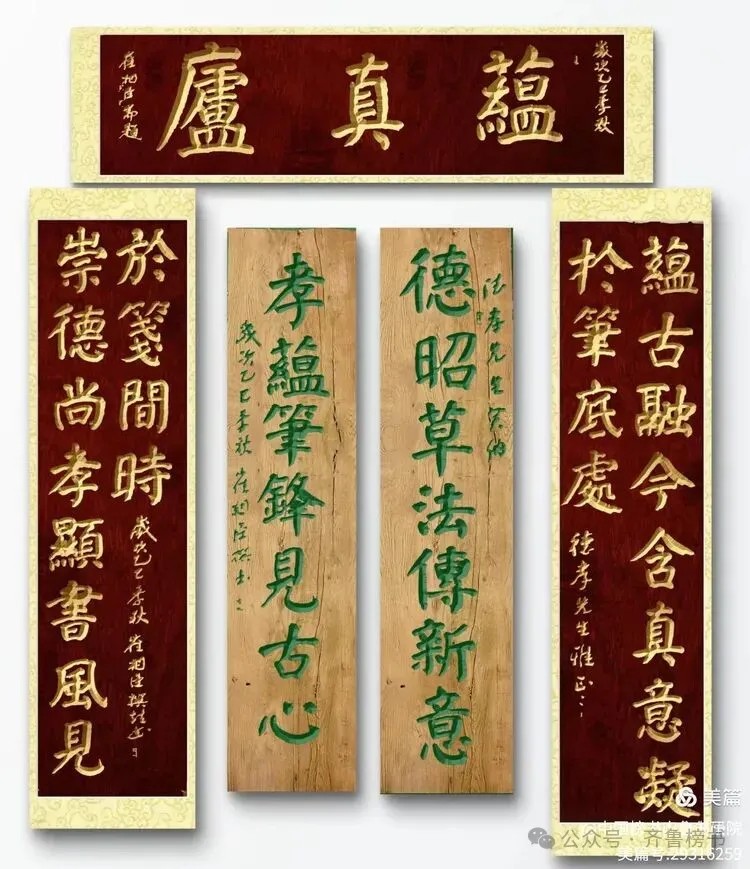 歲次乙巳季秋
蘊真廬
崔相臣題
蘊古融今含真意凝
於筆底處
德孝先生雅正
德昭草法傳新意
孝先生
孝蘊筆鋒見古心
歲次乙巳季秋 崔相臣撰书
崇德尚孝顯書風見
於箋間時
歲次乙巳季秋 崔相臣撰书
美篇
公众号·齐鲁榜书
美篇号:29316259